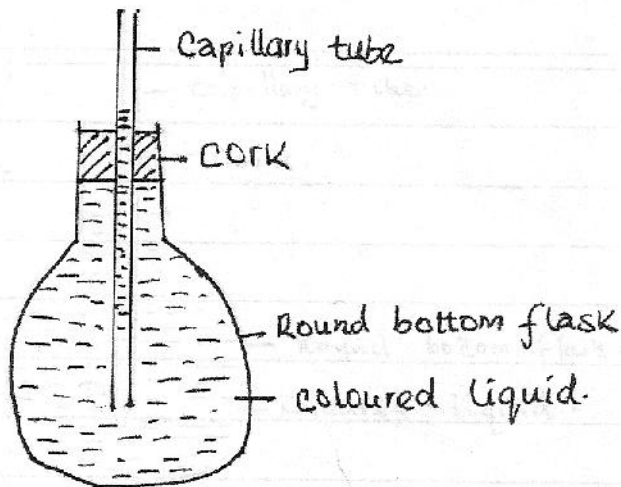 Capillary tube
CORK
Round bottom flask
coloured liquid.